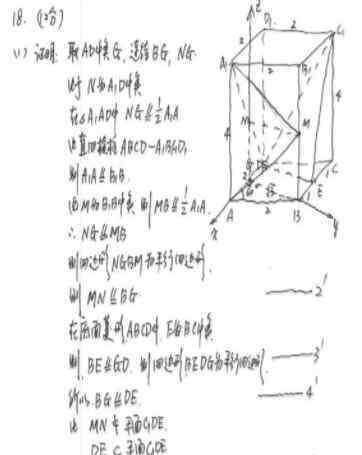 18. (12分)
(1) 证明: 取AD中点G, 连结BG, NG.
由于N为A₁D中点
在△A₁AD中 NG⫽½A₁A
由直四棱柱ABCD-A₁B₁C₁D₁
则A₁A⫽B₁B.
由M为B₁B中点 则MB⫽½A₁A.
∴ NG⫽MB
则四边形NGBM为平行四边形.
则 MN⫽BG 2'
在底面菱形ABCD中, E为BC中点
则 BE⫽GD. 则四边形BEDG为平行四边形. 3'
所以 BG⫽DE. 4'
由 MN⊄平面C₁DE
DE⊂平面C₁DE
z
D₁
2
C₁
A₁
2
B₁
4
4
4
N
M
D
C
G
E
A
2
B
x
y